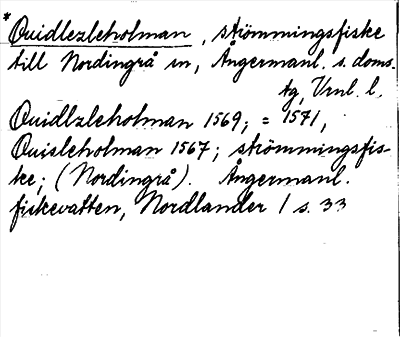 *Quidlezleholman, strömmingsfiske
till Nordingrå sn, Ångermanl. s. doms-
tg, Vrnl. l.
Quidlzleholman 1569; = 1571,
Quisleholman 1567; strömmingsfis-
ke; (Nordingrå). Ångermanl.
fiskevatten, Nordlander 1 s. 33